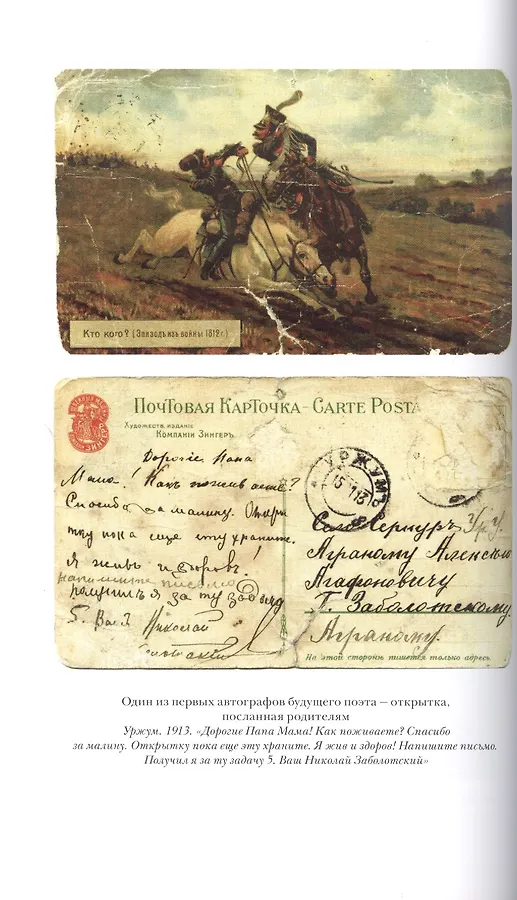 Кто кого? (Эпизодъ изъ войны 1812 г.)
Почтовая Карточка – Carte Posta
Художеств. издание
Компании Зингеръ.
Дорогiе Папа
Мама! Какъ поживаете?
Спасибо за малину. Откры
тку пока еще эту храните.
Я живъ и здоровъ!
напишите письмо
получилъ я за ту задачу
5. Вашъ Николай
УРЖУМЪ
15 1 13
Село Сернуръ
Аграному Алексѣю
Агафоновичу
Г. Заболотскому.
Аграному.
На этой сторонѣ пишется только адресъ.
Один из первых автографов будущего поэта – открытка,
посланная родителям
Уржум. 1913. «Дорогие Папа Мама! Как поживаете? Спасибо
за малину. Открытку пока еще эту храните. Я жив и здоров! Напишите письмо.
Получил я за ту задачу 5. Ваш Николай Заболотский»